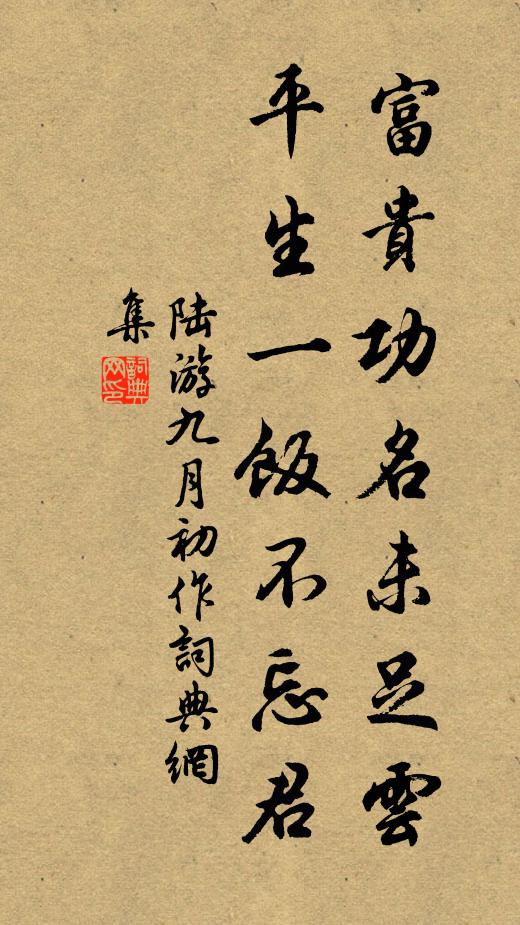 富貴功名未足雲
平生一飯不忘君
陆游九月初作詞典網
集
詞典
网印